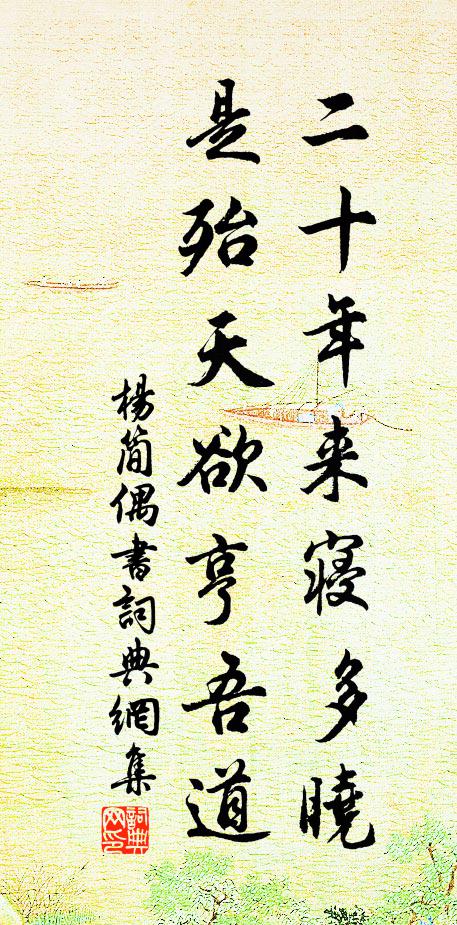 二十年来寝多曉
是殆天欲亨吾道
楊簡偶書詞典網集
詞典網印